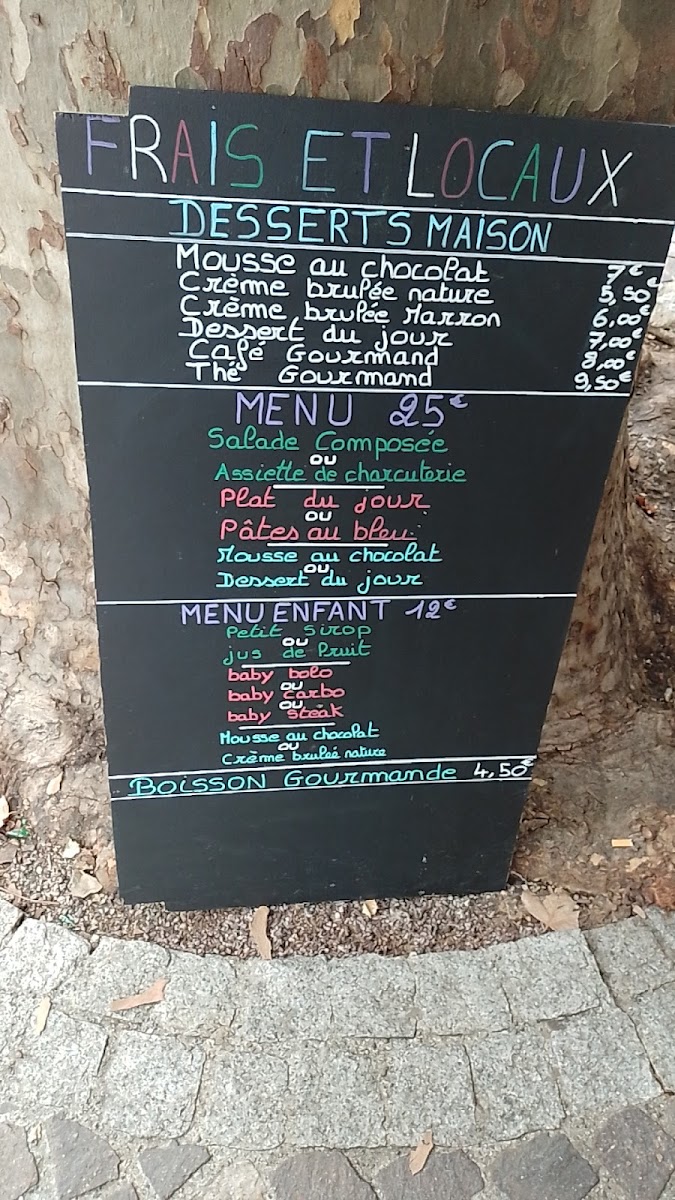 FRAIS ET LOCAUX
DESSERTS MAISON
Mousse au chocolat 7€
Crème brulée nature 5,50€
Crème brulée Marron 6,00€
Dessert du jour 7,00€
Café Gourmand 8,00€
Thé Gourmand 9,50€
MENU 25€
Salade Composée
ou
Assiette de charcuterie
Plat du jour
ou
Pâtes au bleu
Mousse au chocolat
ou
Dessert du jour
MENU ENFANT 12€
Petit Sirop
ou
jus de fruit
baby bolo
ou
baby carbo
ou
baby steak
Mousse au chocolat
ou
Crème brulée nature
BOISSON Gourmande 4,50€